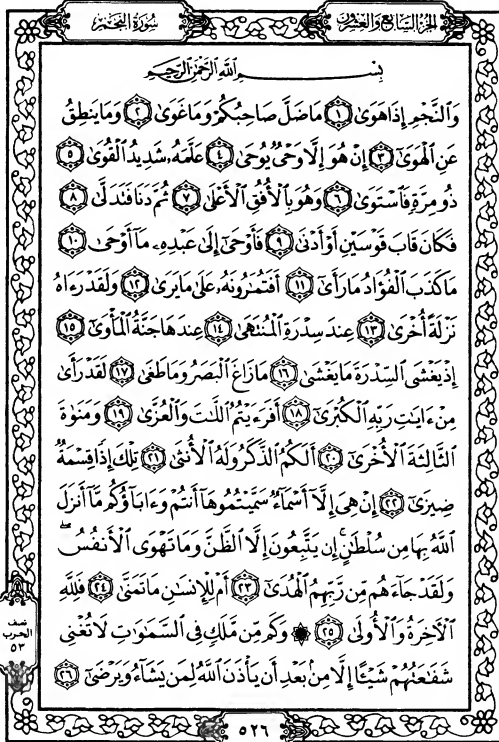 سُورَةُ النَّجْمِ
الجُزْءُ السَّابِعُ وَالعِشْرُونَ
بِسْمِ اللَّهِ الرَّحْمَٰنِ الرَّحِيمِ
وَالنَّجْمِ إِذَا هَوَىٰ ١ مَا ضَلَّ صَاحِبُكُمْ وَمَا غَوَىٰ ٢ وَمَا يَنطِقُ
عَنِ الْهَوَىٰ ٣ إِنْ هُوَ إِلَّا وَحْيٌ يُوحَىٰ ٤ عَلَّمَهُۥ شَدِيدُ الْقُوَىٰ ٥
ذُو مِرَّةٍ فَاسْتَوَىٰ ٦ وَهُوَ بِالْأُفُقِ الْأَعْلَىٰ ٧ ثُمَّ دَنَا فَتَدَلَّىٰ ٨
فَكَانَ قَابَ قَوْسَيْنِ أَوْ أَدْنَىٰ ٩ فَأَوْحَىٰ إِلَىٰ عَبْدِهِۦ مَا أَوْحَىٰ ١٠
مَا كَذَبَ الْفُؤَادُ مَا رَأَىٰ ١١ أَفَتُمَٰرُونَهُۥ عَلَىٰ مَا يَرَىٰ ١٢ وَلَقَدْ رَءَاهُ
نَزْلَةً أُخْرَىٰ ١٣ عِندَ سِدْرَةِ الْمُنتَهَىٰ ١٤ عِندَهَا جَنَّةُ الْمَأْوَىٰ ١٥
إِذْ يَغْشَى السِّدْرَةَ مَا يَغْشَىٰ ١٦ مَا زَاغَ الْبَصَرُ وَمَا طَغَىٰ ١٧ لَقَدْ رَأَىٰ
مِنْ ءَايَٰتِ رَبِّهِ الْكُبْرَىٰ ١٨ أَفَرَءَيْتُمُ اللَّٰتَ وَالْعُزَّىٰ ١٩ وَمَنَوٰةَ
الثَّالِثَةَ الْأُخْرَىٰ ٢٠ أَلَكُمُ الذَّكَرُ وَلَهُ الْأُنثَىٰ ٢١ تِلْكَ إِذًا قِسْمَةٌ
ضِيزَىٰ ٢٢ إِنْ هِيَ إِلَّا أَسْمَاءٌ سَمَّيْتُمُوهَا أَنتُمْ وَءَابَاؤُكُم مَّا أَنزَلَ
اللَّهُ بِهَا مِن سُلْطَٰنٍ ۚ إِن يَتَّبِعُونَ إِلَّا الظَّنَّ وَمَا تَهْوَى الْأَنفُسُ ۖ
وَلَقَدْ جَاءَهُم مِّن رَّبِّهِمُ الْهُدَىٰ ٢٣ أَمْ لِلْإِنسَٰنِ مَا تَمَنَّىٰ ٢٤ فَلِلَّهِ
الْآخِرَةُ وَالْأُولَىٰ ٢٥ ۞ وَكَم مِّن مَّلَكٍ فِي السَّمَٰوَٰتِ لَا تُغْنِي
شَفَٰعَتُهُمْ شَيْـًٔا إِلَّا مِنۢ بَعْدِ أَن يَأْذَنَ اللَّهُ لِمَن يَشَاءُ وَيَرْضَىٰ ٢٦
نصف
الحزب
٥٣
٥٢٦